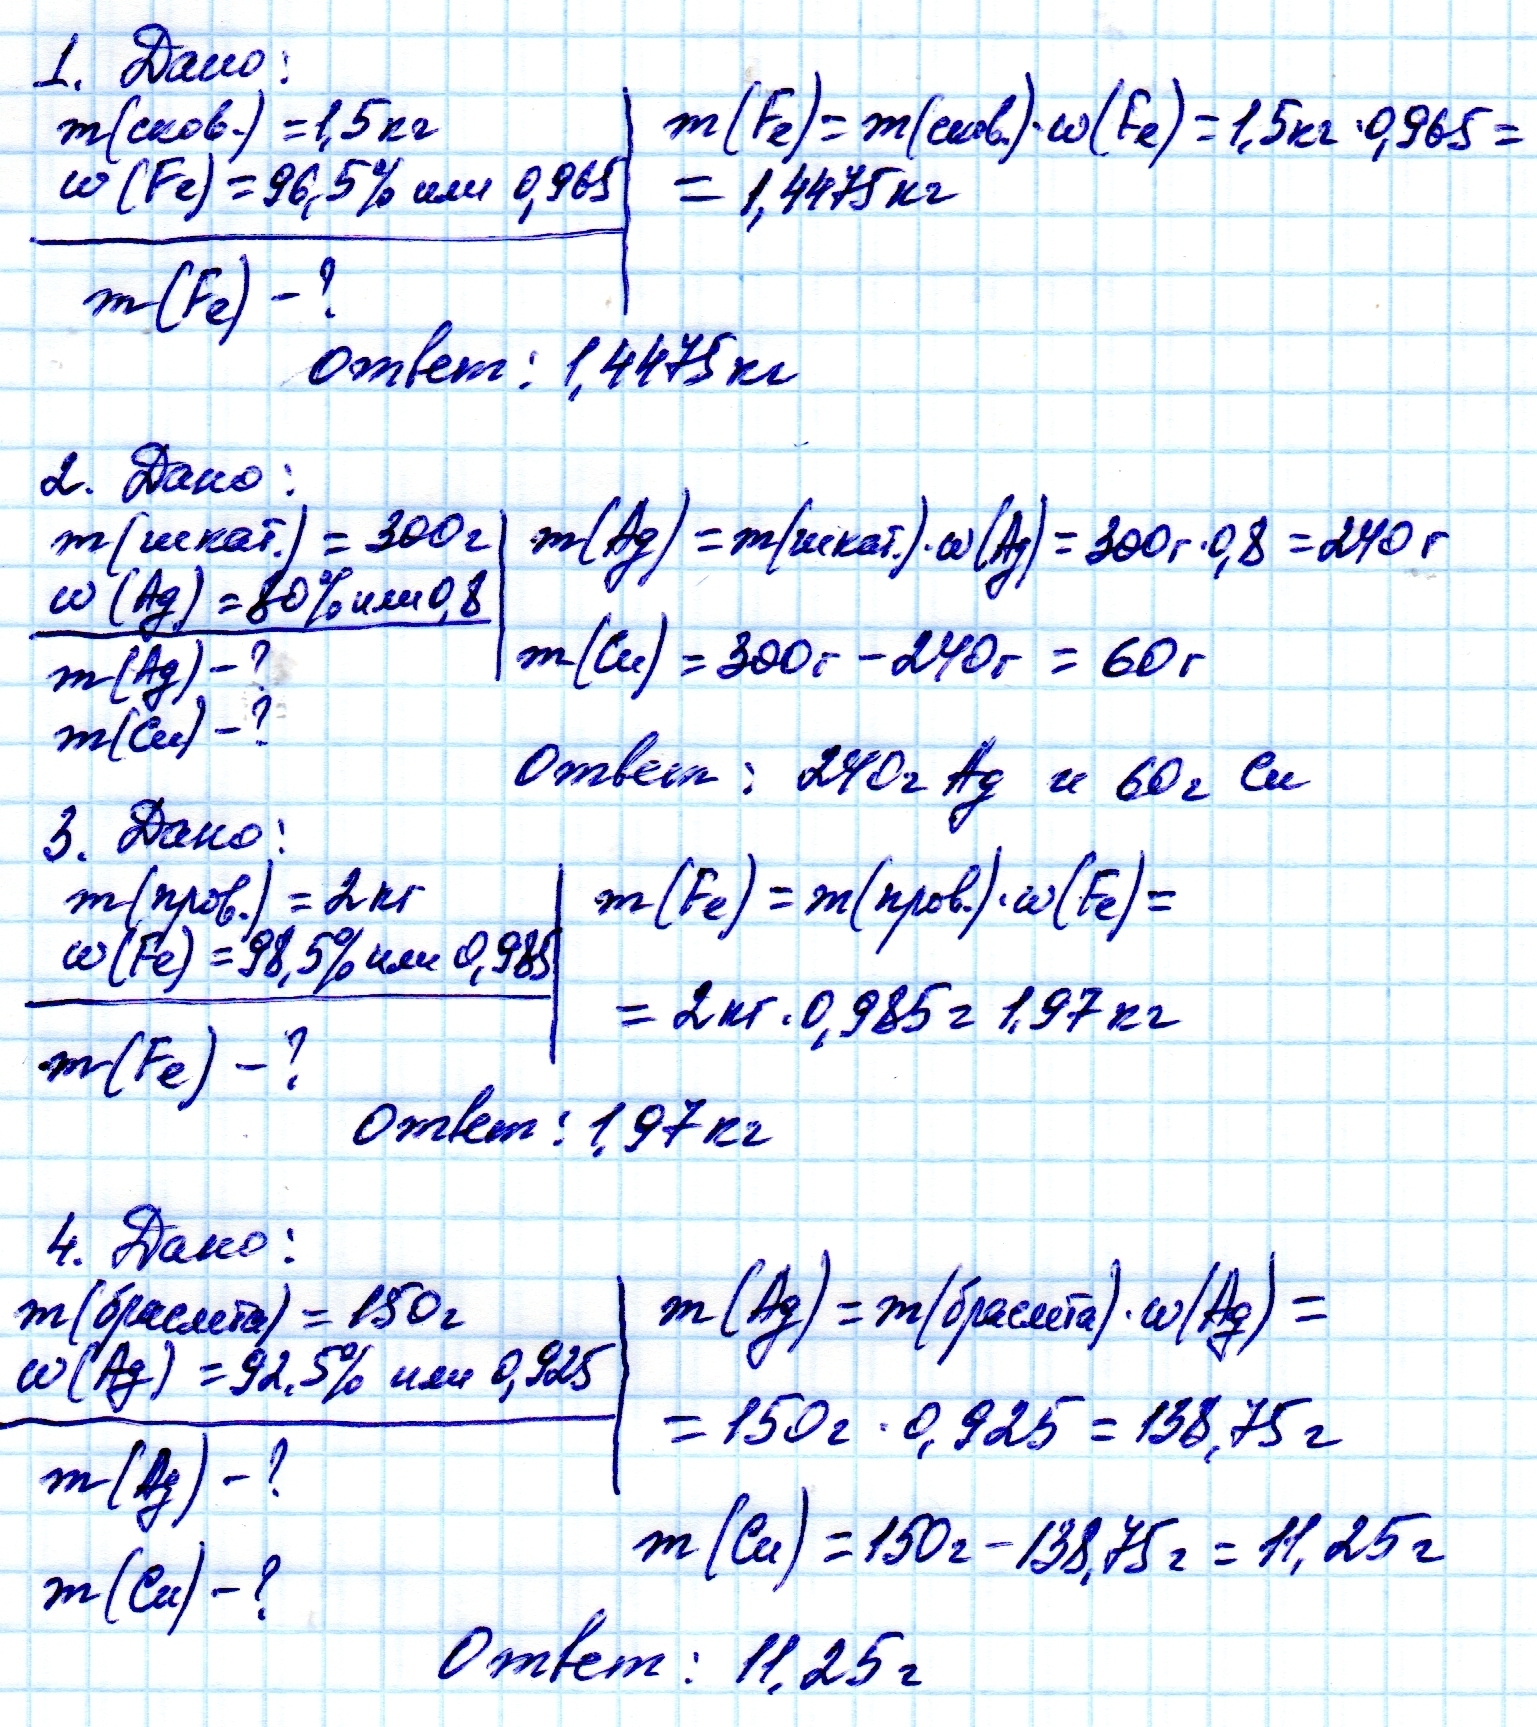 1. Дано:
m(сков.) = 1,5кг
w(Fe) = 96,5% или 0,965
m(Fe) - ?
m(Fe) = m(сков.)·w(Fe) = 1,5кг·0,965 =
= 1,4475кг
Ответ: 1,4475кг
2. Дано:
m(шкат.) = 300г
w(Ag) = 80% или 0,8
m(Ag) - ?
m(Cu) - ?
m(Ag) = m(шкат.)·w(Ag) = 300г·0,8 = 240г
m(Cu) = 300г - 240г = 60г
Ответ: 240г Ag и 60г Cu
3. Дано:
m(пров.) = 2кг
w(Fe) = 98,5% или 0,985
m(Fe) - ?
m(Fe) = m(пров.)·w(Fe) =
= 2кг·0,985 = 1,97кг
Ответ: 1,97кг
4. Дано:
m(браслета) = 150г
w(Ag) = 92,5% или 0,925
m(Ag) - ?
m(Cu) - ?
m(Ag) = m(браслета)·w(Ag) =
= 150г · 0,925 = 138,75г
m(Cu) = 150г - 138,75г = 11,25г
Ответ: 11,25г